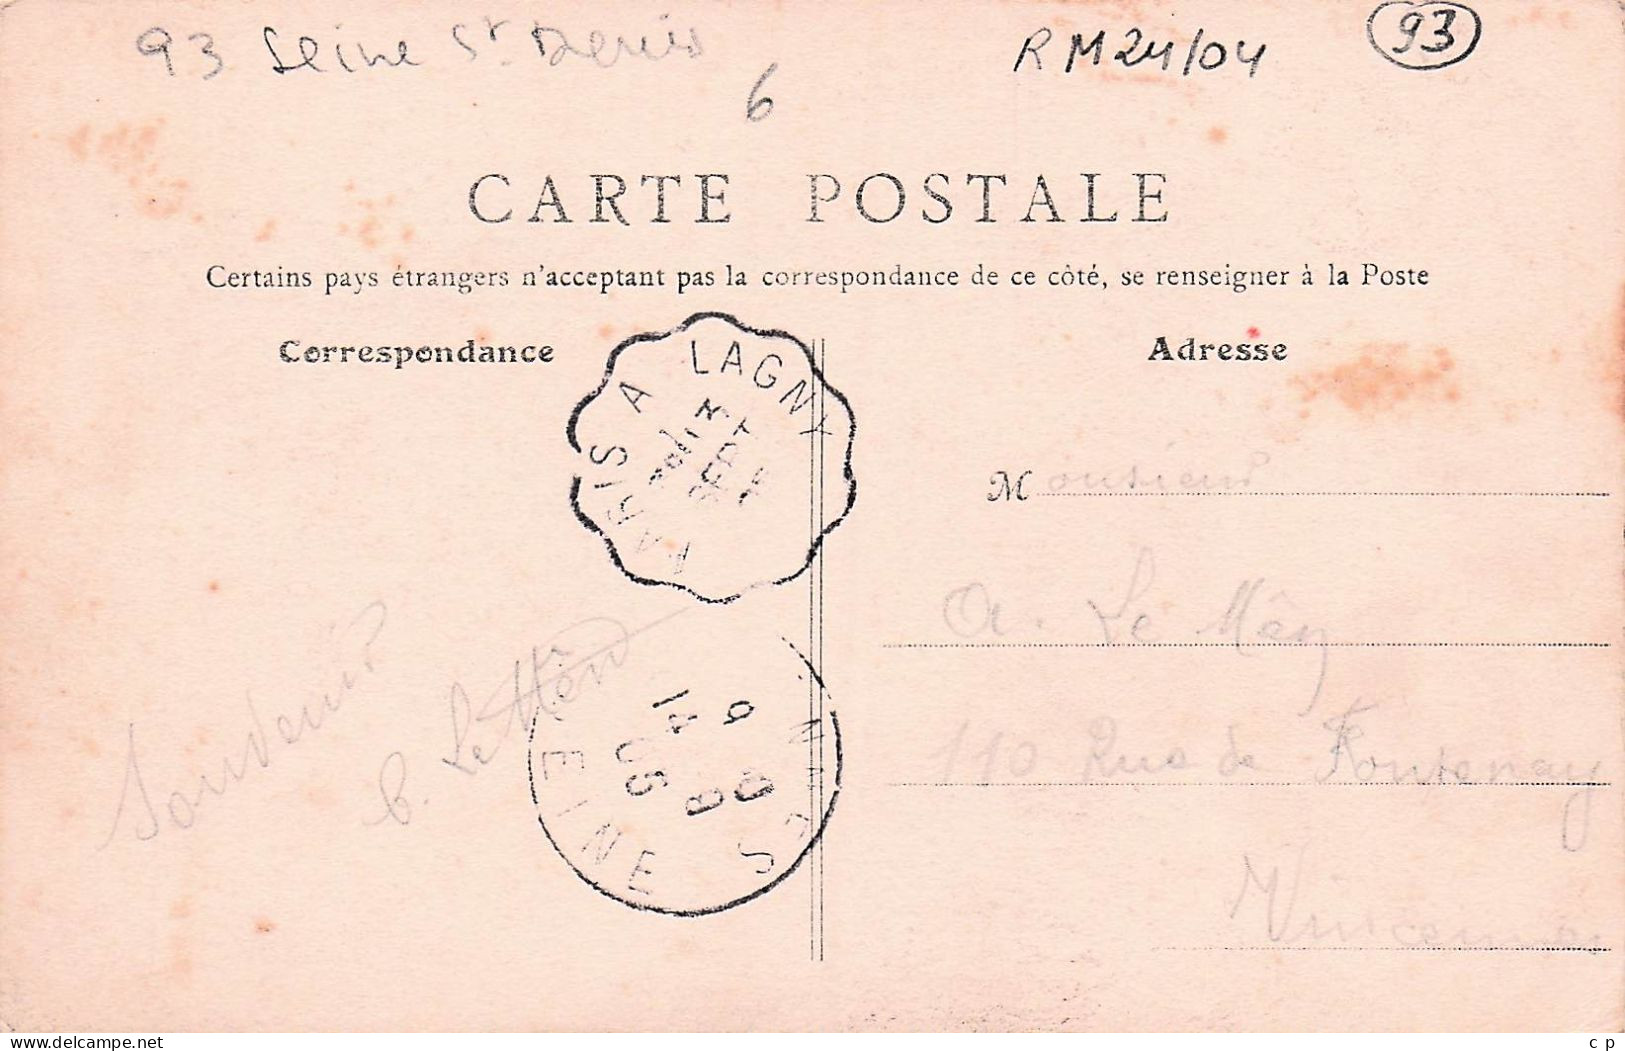 93 Seine St Denis
6
RM24/04
93
CARTE POSTALE
Certains pays étrangers n'acceptant pas la correspondance de ce côté, se renseigner à la Poste
Correspondance
Adresse
PARIS A LAGNY
SEPT
Monsieur
A. Le Mên
110 Rue de Fontenay
Vincennes
Souvenir
Le Mên
14 9
05
SEINE
c p